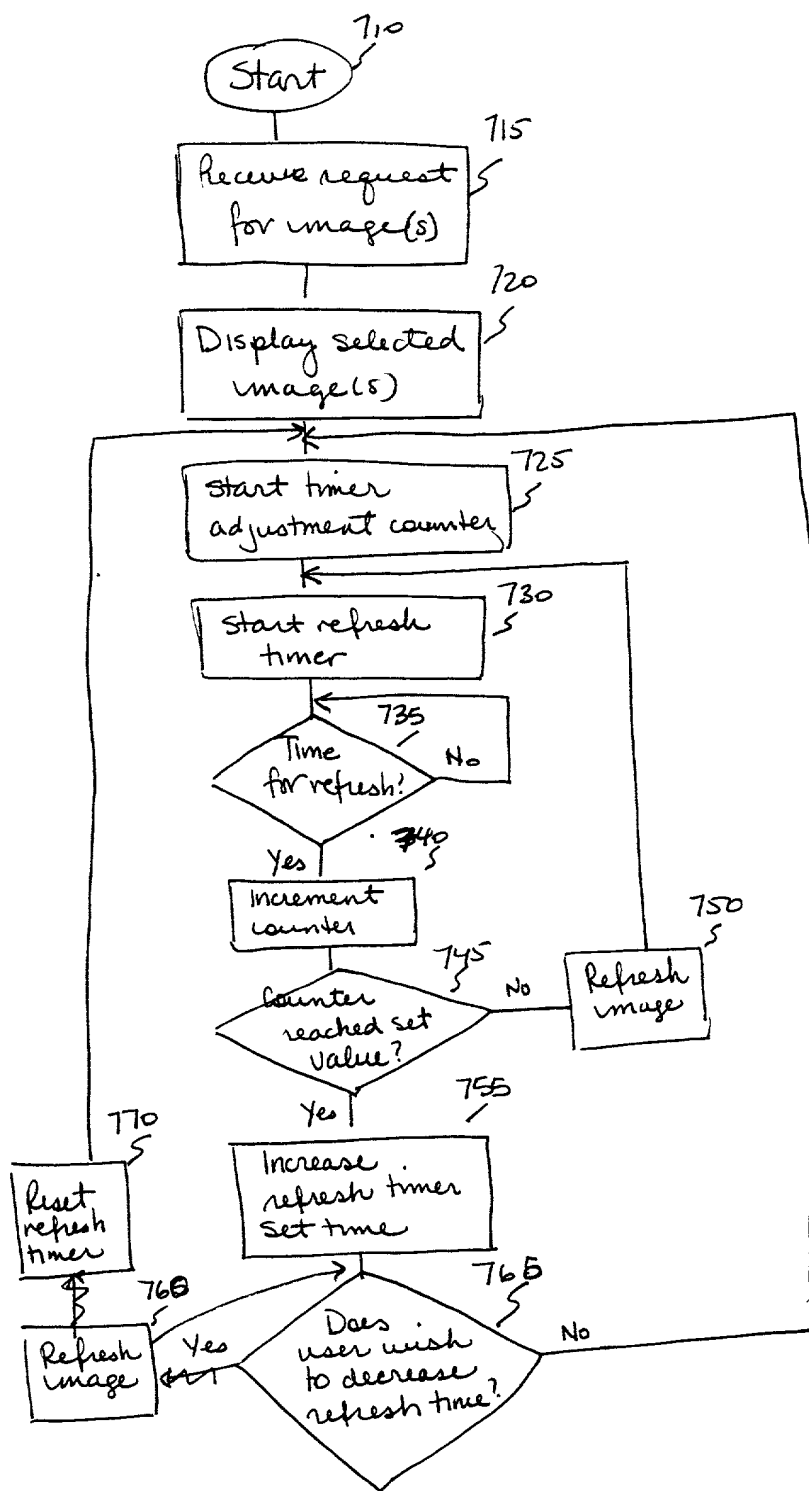 710
Start
715
Receive request
for image(s)
720
Display selected
image(s)
725
Start timer
adjustment counter
730
Start refresh
timer
735
Time
for refresh?
No
Yes
740
Increment
counter
745
Counter
reached set
value?
No
750
Refresh
image
Yes
755
Increase
refresh timer
set time
770
Reset
refresh
timer
Refresh
image
Yes
765
Does
user wish
to decrease
refresh time?
No